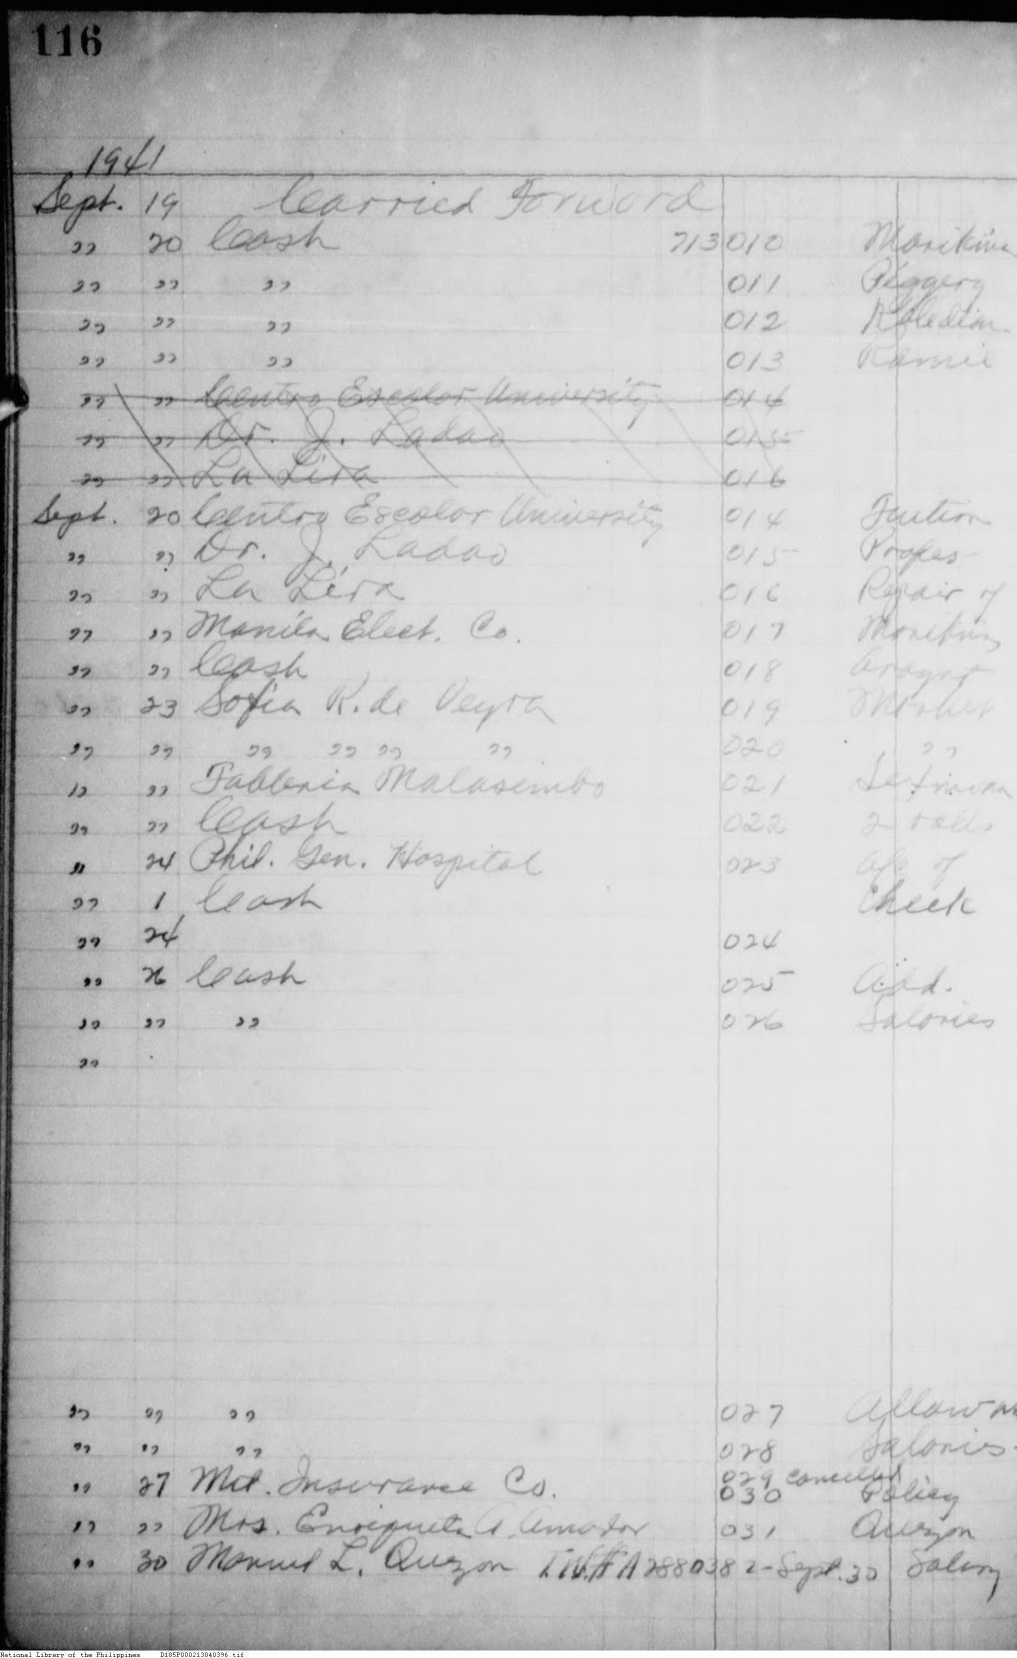 116
1941
Sept. 19 Carried Forward
" 20 Cash 713 010 Marikina
" " " 011 Piggery
" " " 012
" " " 013 Ramie
" " Centro Escolar University 014
" " Dr. J. Ladao 015
" " La Lira 016
Sept. 20 Centro Escolar University 014 Tuition
" " Dr. J. Ladao 015 Profes
" " La Lira 016 Repair of
" " Manila Elect. Co. 017
" " Cash 018 Arayat
" 23 Sofia R. de Veyra 019
" " " " " " 020 "
" " Malasimbo 021
" " Cash 022 2
" 24 Phil. Gen. Hospital 023 of
" 1 Cash Check
" 24 024
" 26 Cash 025 Add.
" " " 026 Salaries
"
" " " 027
" " " 028 Salaries
029 Cancelled
" 27 Mut. Insurance Co. 030 Policy
" " Mrs. Enriqueta A. Amador 031 Quezon
" 30 Manuel L. Quezon T.W.# A2880382-Sept. 30 Salary
National Library of the Philippines D185P000213040396.tif